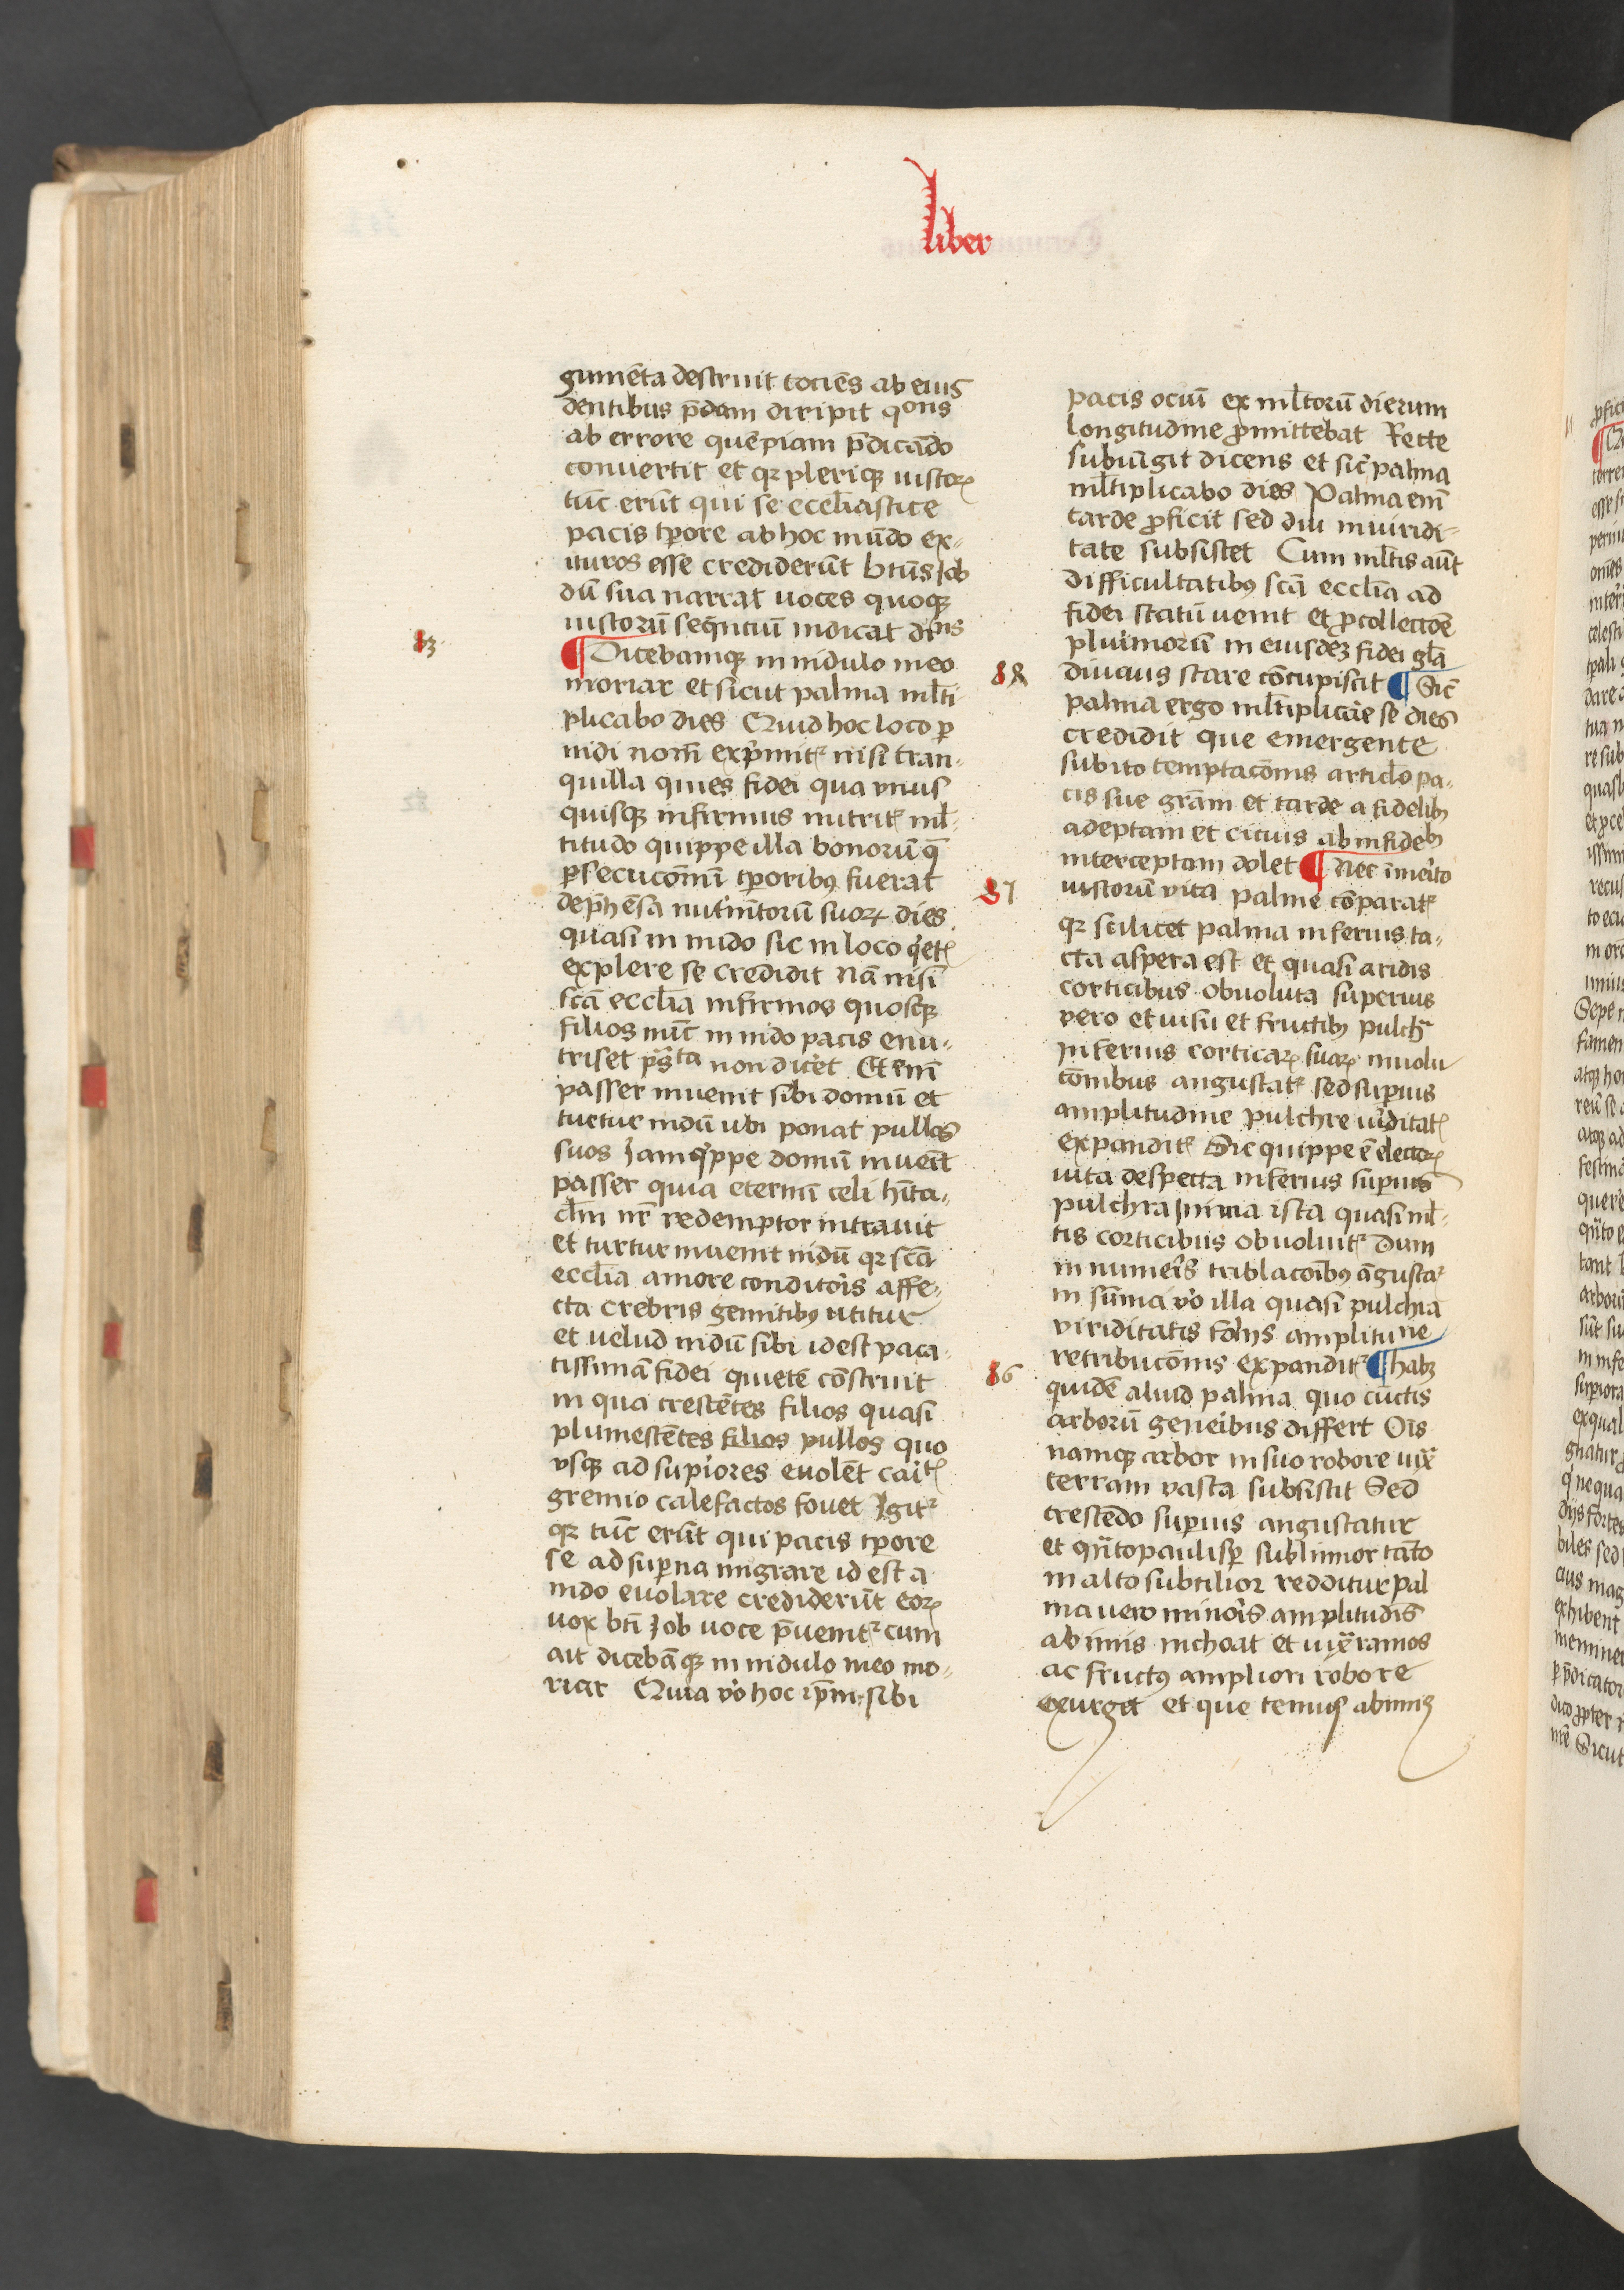 liber
gumēta destruit tociēs ab eius
dentibus p̄dam diripit qons
ab errore quēpiam p̄dicādo
conuertit et qꝛ pleriqꝫ iustoꝝ
tūc erūt qui se eccl̄iastice
pacis tp̄ore ab hoc mūdo ex-
ituros esse crediderūt btūs Job
dū sua narrat uoces quoqꝫ
iustorū seq̄nciū indicat dicns
13
¶ Dicebamqꝫ in nidulo meo
moriar et sicut palma ml̄ti
plicabo dies Quid hoc loco ꝑ
nidi nom̄ exp̄mitꝛ nisi tran-
quilla quies fidei qua vnus
quisqꝫ infirmus nutritꝛ ml̄-
titudo quippe illa bonorū q̄
ꝑsecucōm̄ tp̄oribꝰ fuerat
dep̄hēsa nutrīntorū suoꝝ dies
quasi in nido sic in loco q̄etꝭ
explere se credidit nā nisi
scā eccl̄ia infirmos quosqꝫ
filios nūc in nido pacis enu-
triset p̄sta non dicet Et enī
passer inuenit sibi domū et
turtur nidū ubi ponat pullos
suos Jam q̄ppe domū inueīt
passer quia eternū celi hīta-
cl̄m nr̄ redemptor intrauit
et turtur inuenit nidū qꝛ scā
eccl̄ia amore conditoris affe-
cta crebris gemitibꝰ utitur
et uelud nidū sibi id est paca-
tissimā fidei quietē cōstruit
in qua crescētes filios quasi
plumescētes filios pullos quo
vsqꝫ ad supiores euolēt caītꝭ
gremio calefactos fouet Jgitꝛ
qꝛ tūc erūt qui pacis tp̄ore
se ad suꝑna migrare id est a
nido euolare crediderūt eoꝝ
uox btī Job uoce p̄uenitꝛ cum
ait dicebāqꝫ in nidulo meo mo-
riar Quia v̊o hoc ip̄m sibi
pacis ociū ex ml̄torū dierum
longitudine ꝓmittebat Recte
subiūgit dicens et sic̄ palma
ml̄tiplicabo dies Palma enī
tarde ꝓficit sed diu in uiridi-
tate subsistet Cum ml̄tis aūt
difficultatibꝰ scā eccl̄ia ad
fidei statū uenit et ꝓ collectōē
plurimorū in eiusdēꝫ fidei gl̄a
88
diucius stare cōcupiscit ¶ Sic̄
palma ergo ml̄tiplicare se dies
credidit que emergente
subito temptacōnis articl̄o pa-
cis sue grām et tarde a fidelibꝰ
adeptam et cicius ab infidelibꝰ
interceptam dolet ¶ Nec īmerito
87
iustorū vita palme cōparatꝛ
qꝛ scilicet palma inferius ta-
cta aspera est et quasi aridis
corticibus obuoluta superius
vero et uisu et fructibꝰ pulchra
inferius corticaꝝ suaꝝ inuolu
cōnibus angustatꝛ sed suꝑius
amplitudine pulchre uīditatꝭ
expanditꝛ Sic quippe ē electoꝝ
uita despecta inferius suꝑius
pulchra Jn ima ista quasi ml̄-
tis corticibus obuoluitꝛ dum
in numeris tribl̄acōibꝰ āgustaꝛ
in sūma v̊o illa quasi pulchia
viriditatis folijs amplitudine
retribucōnis expanditꝛ ¶ habꝫ
86
quidē aliud palma quo cūctis
arborū generibus differt Oīs
namqꝫ arbor in suo robore iux̄
terram vasta subsistit Sed
crescēdo suꝑius angustatur
et q̄ntopaulisꝑ sublimior tāto
in alto subtilior redditur pal
ma uero minoris amplitudīs
ab imis inchoat et iux̄ ramos
ac fructꝰ ampliori robore
exurget et que tenuis ab imis